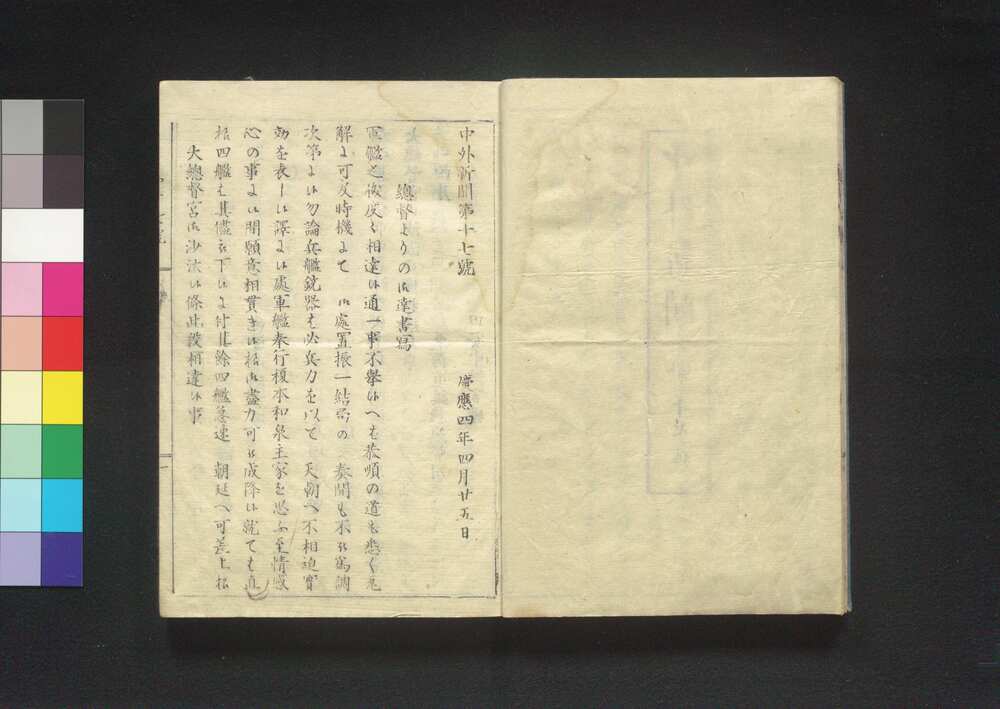 中外新聞第十七號
慶應四年四月廿五日
總督よりの御達書寫
軍艦之儀度々相違候通一事不擧候へも恭順の道も悉く瓦
解よ可及時機よて 御處置振一結局の 奏聞も不被爲調
次第よ候勿論兵艦銃器も必兵力を以て 天朝へ不相迫實
効を表し候譯よ候處軍艦奉行榎本和泉主家を思ふ至情感
心の事よ候間願意相貫き候樣御盡力可被成降候就ても直
樣四艦も其儘被下候よ付其餘四艦急速 朝廷へ可差上樣
大總督宮御沙汰候條此段相達候事